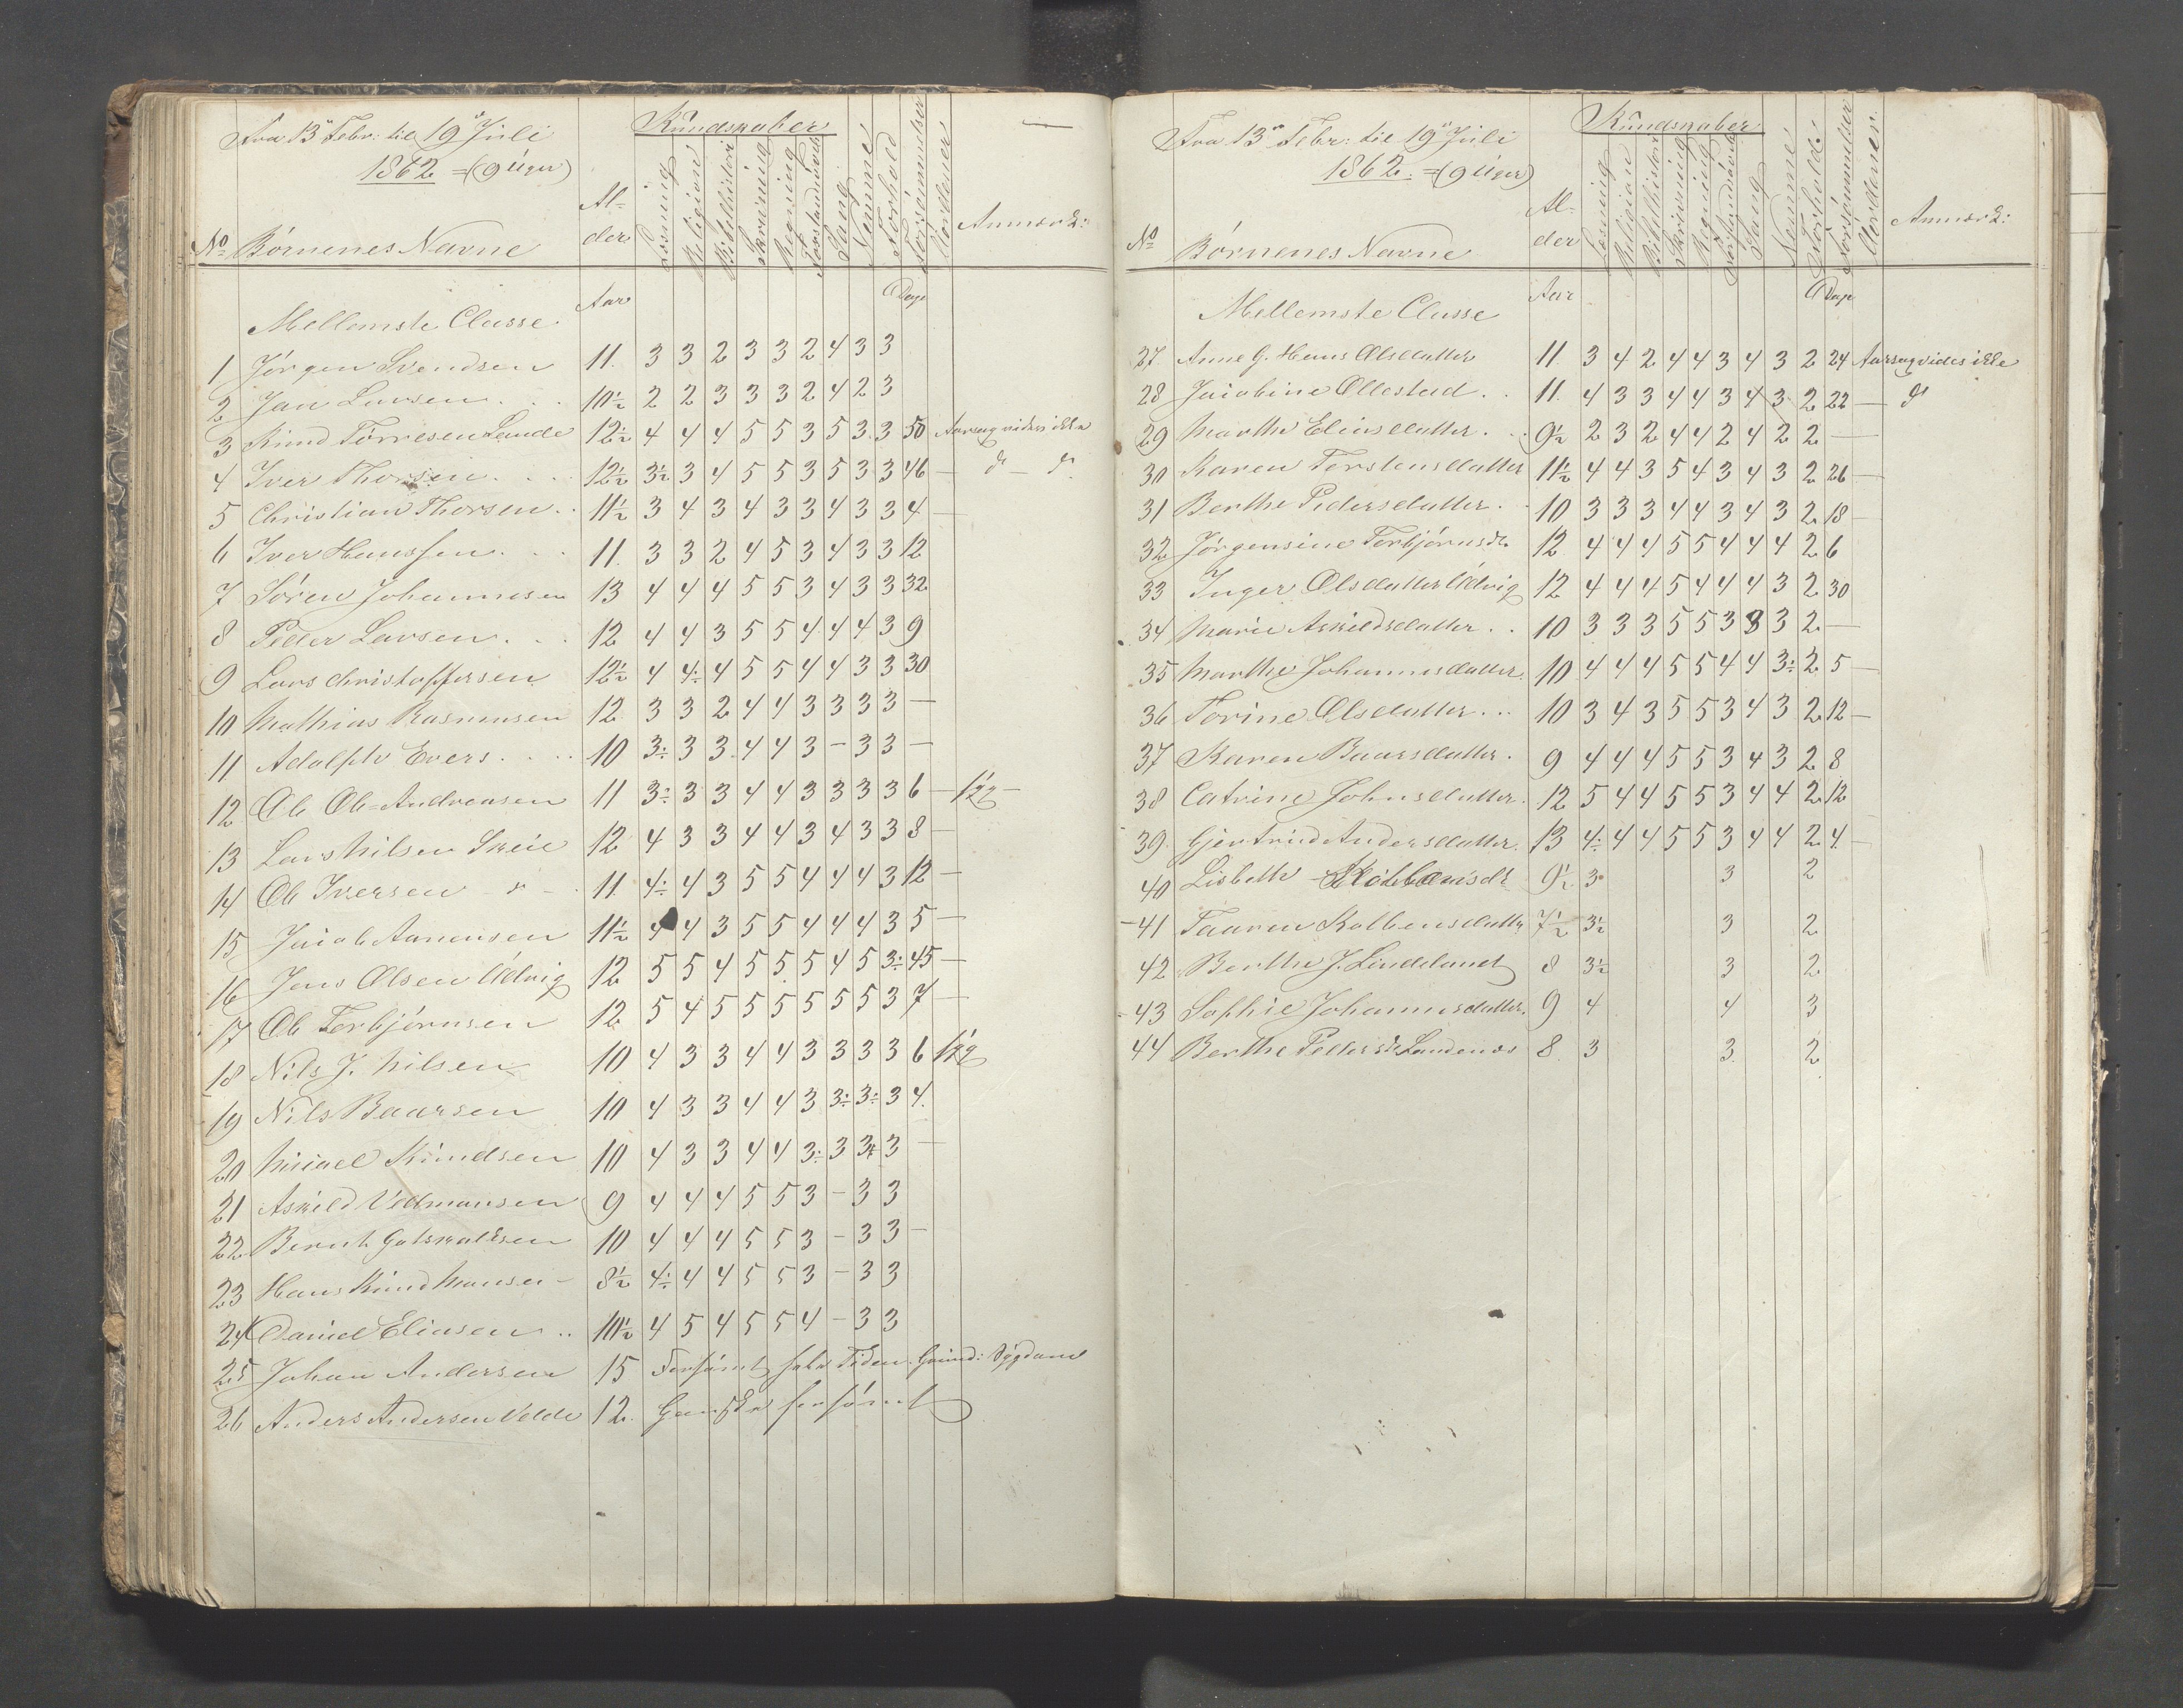 Fra 13de Febr: til 19de Juli
1862 = (9 Uger)
Kundskaber
No Børnenes Navne Alder Læsning Religion Bibelhistorie Skrivning Regning Forstandsøvelse Sang Nemme Forhold Forsømmelser Anmærk:
Aar Dage
Mellemste Classe
1 Jørgen Svendsen 11 3 3 2 3 3 2 4 3 3
2 Jan Larsen 10½ 2 2 3 3 3 2 4 2 3
3 Knud Tørresen Lande 12½ 4 4 4 5 5 3 5 3 3 50 Aarsag vides ikke
4 Iver Thorsen 12½ 3½ 3 4 5 5 3 5 3 3 46 — do — do
5 Christian Thorsen 11½ 3 4 3 4 3 3 4 3 3 4 —
6 Iver Hanssen 11 3 3 2 4 5 3 4 3 3 12
7 Søren Johannesen 13 4 4 4 5 5 3 4 3 3 32
8 Peder Larsen 12 4 4 3 5 5 4 4 4 3 9
9 Lars Christoffersen 12½ 4 4÷ 4 5 5 4 4 3 3 30
10 Mathias Rasmusen 12 3 3 2 4 4 3 3 3 3 —
11 Adolph Evers 10 3÷ 3 3 4 4 3 – 3 3 —
12 Ole Ole-Andreasen 11 3÷ 3 3 4 4 3 3 3 3 6 —
13 Lars Nilsen Skeie 12 4 3 3 4 4 3 4 3 3 8 —
14 Ole Iversen 11 4÷ 4 3 5 5 4 4 4 3 12 —
15 Jacob Aanensen 11½ 4 4 3 5 5 4 4 4 3 5 —
16 Jens Olsen Udvig 12 5 5 4 5 5 5 4 5 3÷ 45 —
17 Ole Torbjørnsen 12 5 4 5 5 5 5 5 5 3 7 —
18 Nils J. Nilsen 10 4 3 3 4 4 3 3 3 3 6
19 Nils Baarsen 10 4 3 3 4 4 3 3÷ 3÷ 3 4
20 Micael Knudsen 10 4 3 3 4 4 3÷ 3 3 3 —
21 Askild Vedmansen 9 4 4 4 5 5 3 – 3 3
22 Bernt Gotskalksen 10 4 4 4 5 5 3 – 3 3 –
23 Hans Knud Hansen 8½ 4÷ 4 4 5 5 3 – 3 3
24 Daniel Eliasen 10½ 4 5 4 5 5 4 – 3 3
25 Johan Andersen 15 Forsømt hele Tiden. Grund: Sygdom
26 Anders Andersen Velde 12 Ganske forsømt
Fra 13de Febr: til 19de Juli
1862. = (9 Uger)
Kundskaber
No Børnenes Navne Alder Læsning Religion Bibelhistorie Skrivning Regning Forstandsøvelse Sang Nemme Forhold: Forsømmelser Anmærk:
Aar Dage
Mellemste Classe
27 Anne G. Hans Olsdatter 11 3 4 2 4 4 3 4 3 2 24 Aarsag vides ikke
28 Jacobine Ollestad 11 4 3 3 4 4 3 4 3 2 22 — do
29 Marthe Eliasdatter 9½ 2 3 2 4 4 2 4 2 2 —
30 Karen Terstensdatter 11½ 4 4 3 5 4 3 4 3 2 26 —
31 Berthe Pedersdatter 10 3 3 3 4 4 3 4 3 2 18 —
32 Jørgensine Torbjørnsdr 12 4 4 4 5 5 4 4 4 2 6
33 Inger Olsdatter Udvig 12 4 4 4 5 4 4 4 3 2 30
34 Marie Askildsdatter 10 3 3 3 5 5 3 3 3 2 —
35 Marthe Johannesdatter 10 4 4 4 5 5 4 4 3÷ 2 5 —
36 Torine Olsdatter 10 3 4 3 5 5 3 4 3 2 12 —
37 Karen Baarsdatter 9 4 4 4 5 5 3 4 3 2 8
38 Catrine Johnsdatter 12 5 4 4 5 5 3 4 4 2 12
39 Gjertrud Andersdatter 13 4÷ 4 4 5 5 3 4 4 2 4 —
40 Lisbeth 9½ 3 3 2
41 Taaren Kolbensdatter 7½ 3½ 3 2
42 Berthe J. Lindeland 8 3½ 3 2
43 Sophie Johannesdatter 9 4 4 3
44 Berthe Pedersdr Sandenos 8 3 3 2